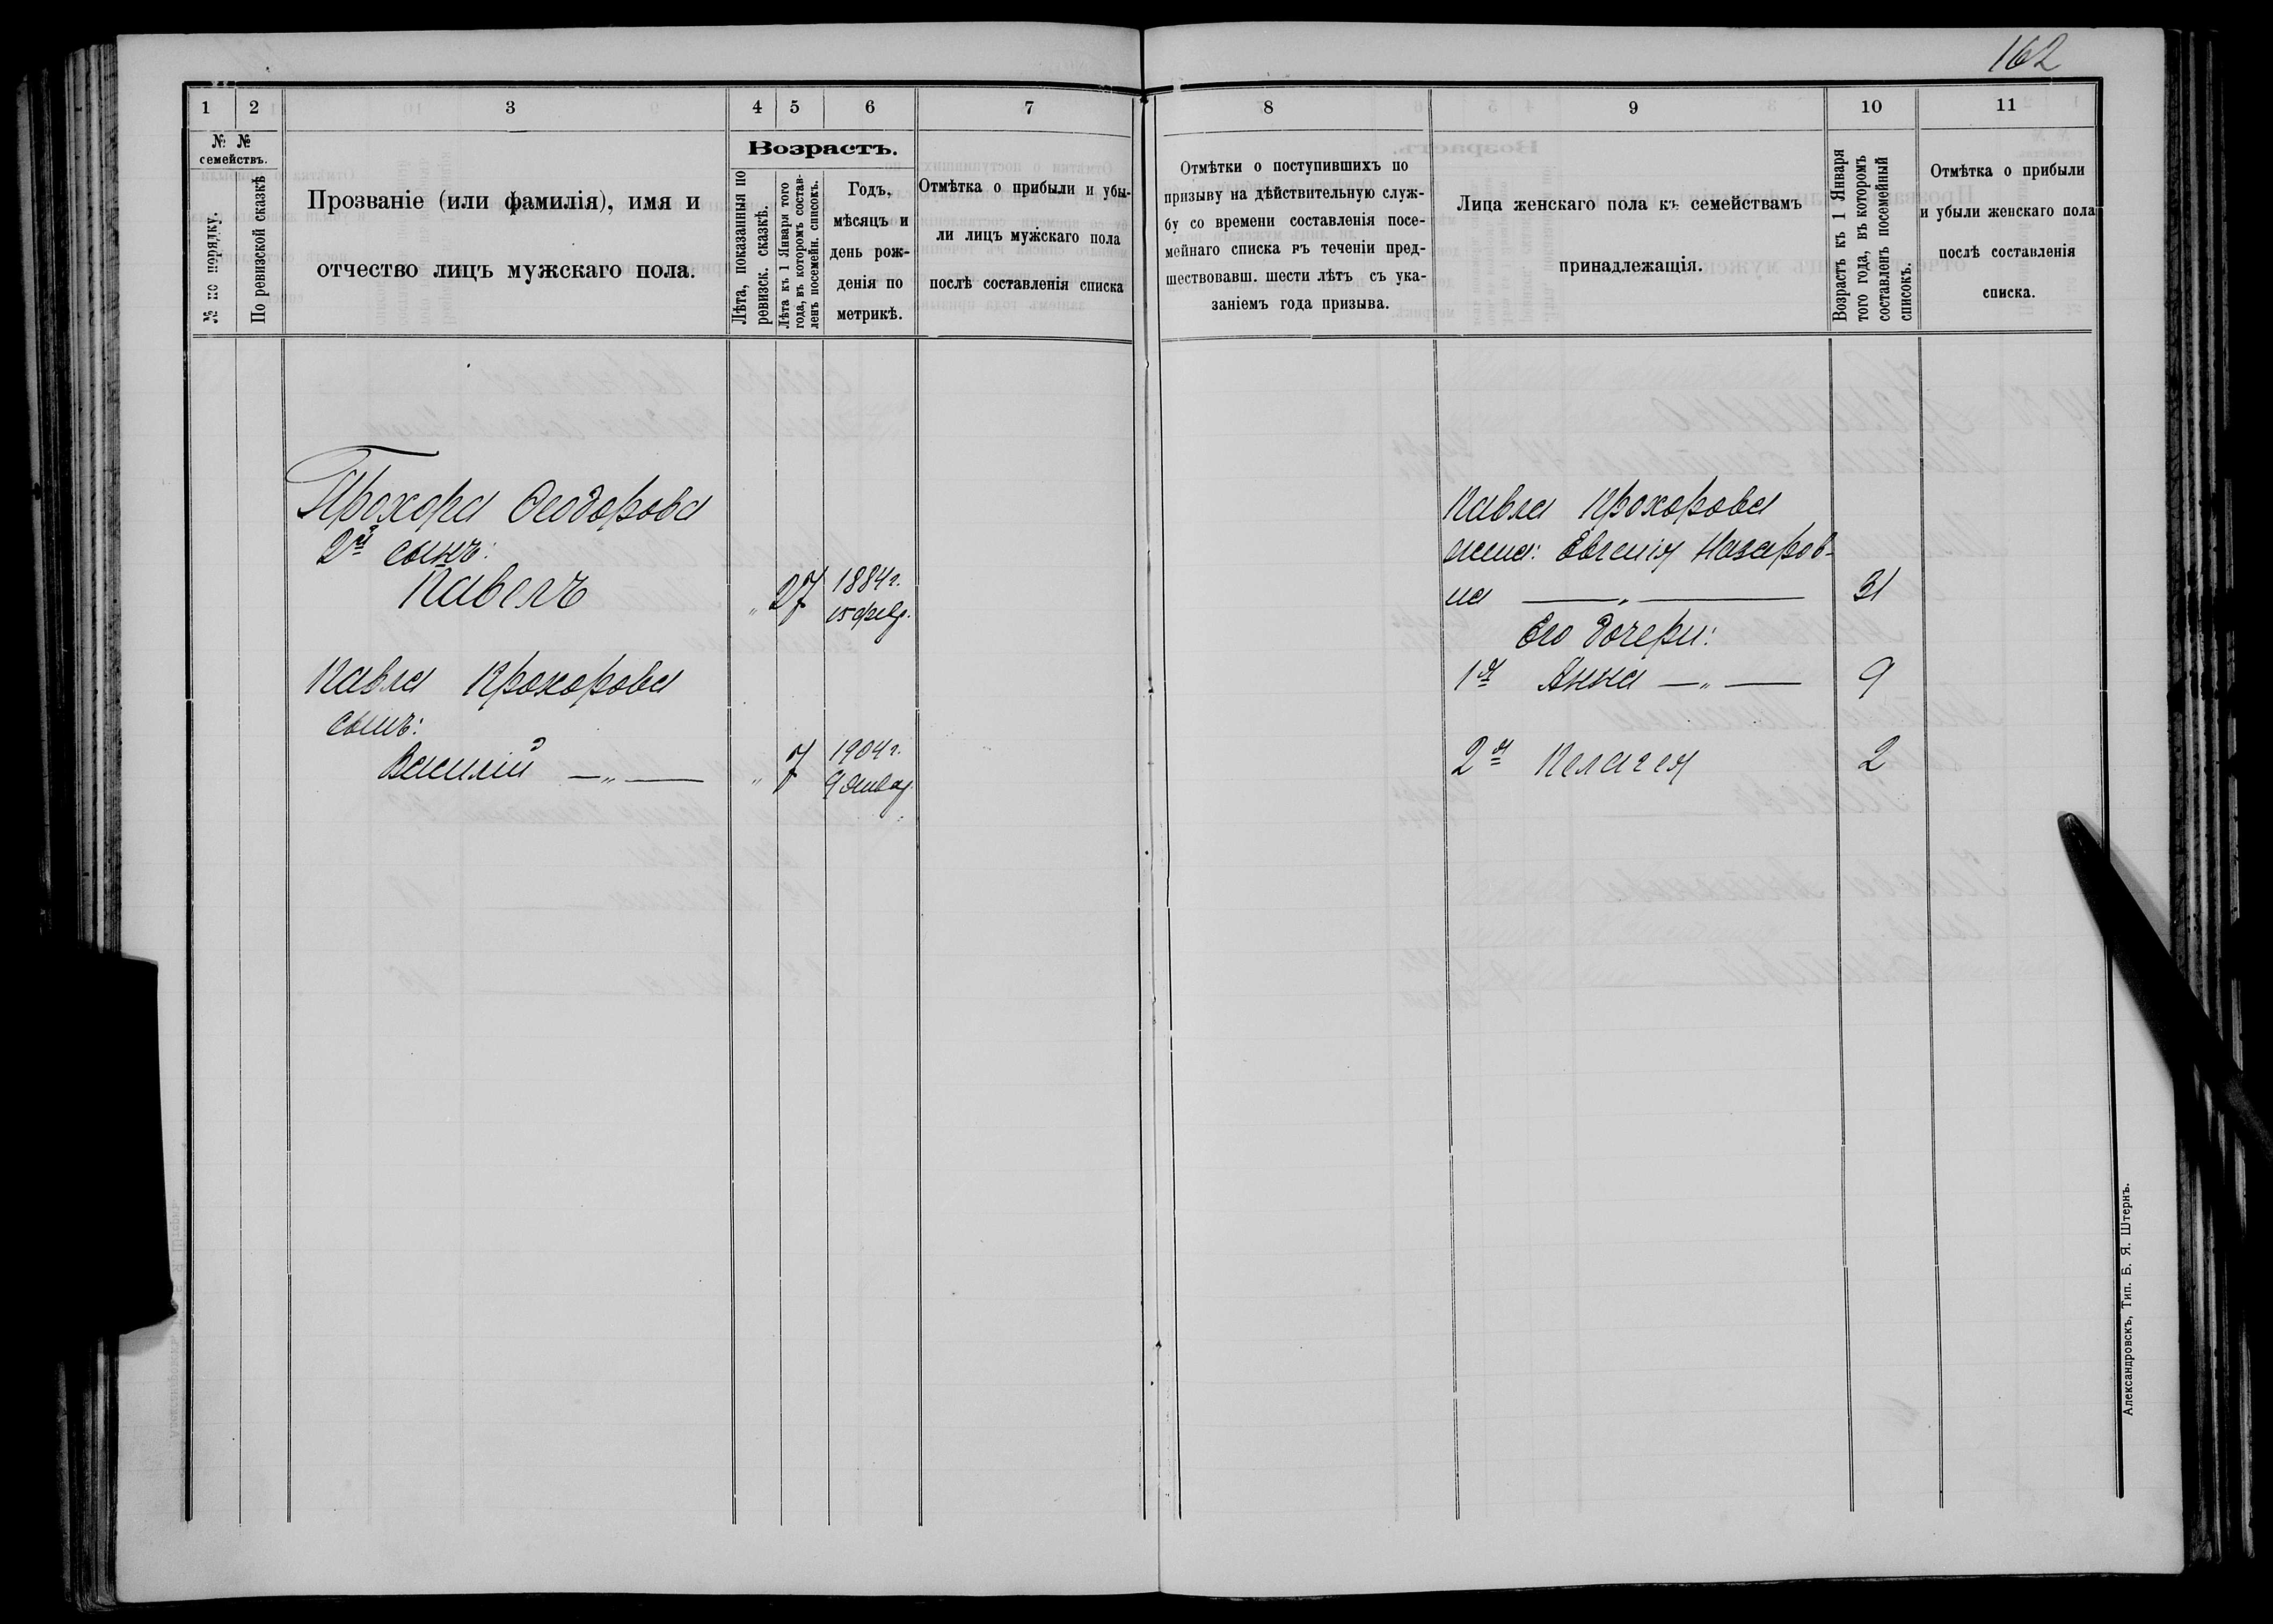 162
1 2 3 4 5 6 7
№ №
семействъ.
№ по порядку.
По ревизской сказкѣ
Прозваніе (или фамилія), имя и
отчество лицъ мужскаго пола.
Возрастъ.
Лѣта, показанныя по
ревизск. сказкѣ.
Лѣта къ 1 Января того
года, въ которомъ состав-
ленъ посемейн. списокъ.
Годъ,
мѣсяцъ и
день рож-
денія по
метрикѣ.
Отмѣтка о прибыли и убы-
ли лицъ мужскаго пола
послѣ составленія списка
Прохора Ѳеодорова
2й сынъ:
Павелъ " 27 1884 г.
15 февр.
Павла Прохорова
сынъ:
Василій —"— " 7 1904 г.
9 январ.
8 9 10 11
Отмѣтки о поступившихъ по
призыву на дѣйствительную служ-
бу со времени составленія посе-
мейнаго списка въ теченіи пред-
шествовавш. шести лѣтъ съ ука-
заніемъ года призыва.
Лица женскаго пола къ семействамъ
принадлежащія.
Возрастъ къ 1 Января
того года, въ которомъ
составленъ посемейный
списокъ.
Отмѣтка о прибыли
и убыли женскаго пола
послѣ составленія
списка.
Павла Прохорова
жена: Евгенія Назаров-
на —"— 31
Его дочери:
1я Анна —"— 9
2я Пелагея 2
Александровскъ, Тип. Б. Я. Штернъ.